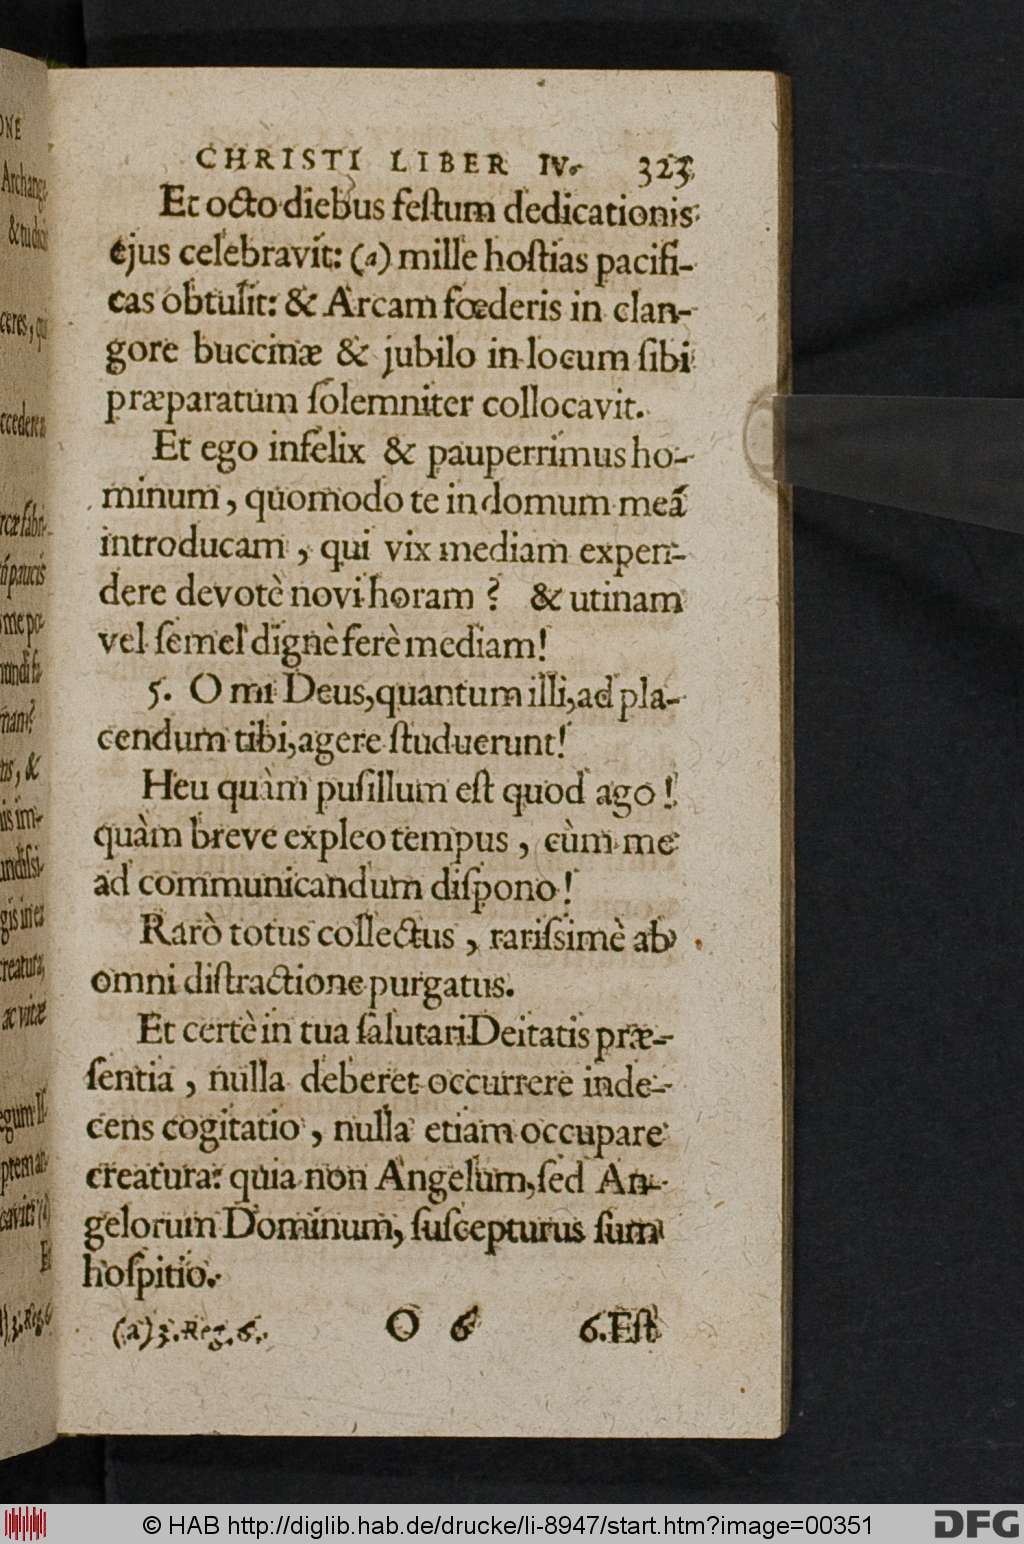 CHRISTI LIBER IV. 323
Et octo diebus feſtum dedicationis
ejus celebravit: (a) mille hoſtias pacifi-
cas obtulit: & Arcam fœderis in clan-
gore buccinæ & jubilo in locum ſibi
præparatum ſolemniter collocavit.
Et ego infelix & pauperrimus ho-
minum, quomodo te in domum meã
introducam, qui vix mediam expen-
dere devotè novi horam? & utinam
vel ſemel dignè ferè mediam!
5. O mi Deus, quantum illi, ad pla-
cendum tibi, agere ſtuduerunt!
Heu quàm puſillum eſt quod ago!
quàm breve expleo tempus, cùm me
ad communicandum diſpono!
Rarò totus collectus, rariſsimè ab
omni diſtractione purgatus.
Et certè in tua ſalutari Deitatis præ-
ſentia, nulla deberet occurrere inde-
cens cogitatio, nulla etiam occupare
creatura: quia non Angelum, ſed An-
gelorum Dominum, ſuſcepturus ſum
hoſpitio.
(a) 3. Reg. 6. O 6 6. Eſt
© HAB http://diglib.hab.de/drucke/li-8947/start.htm?image=00351
DFG